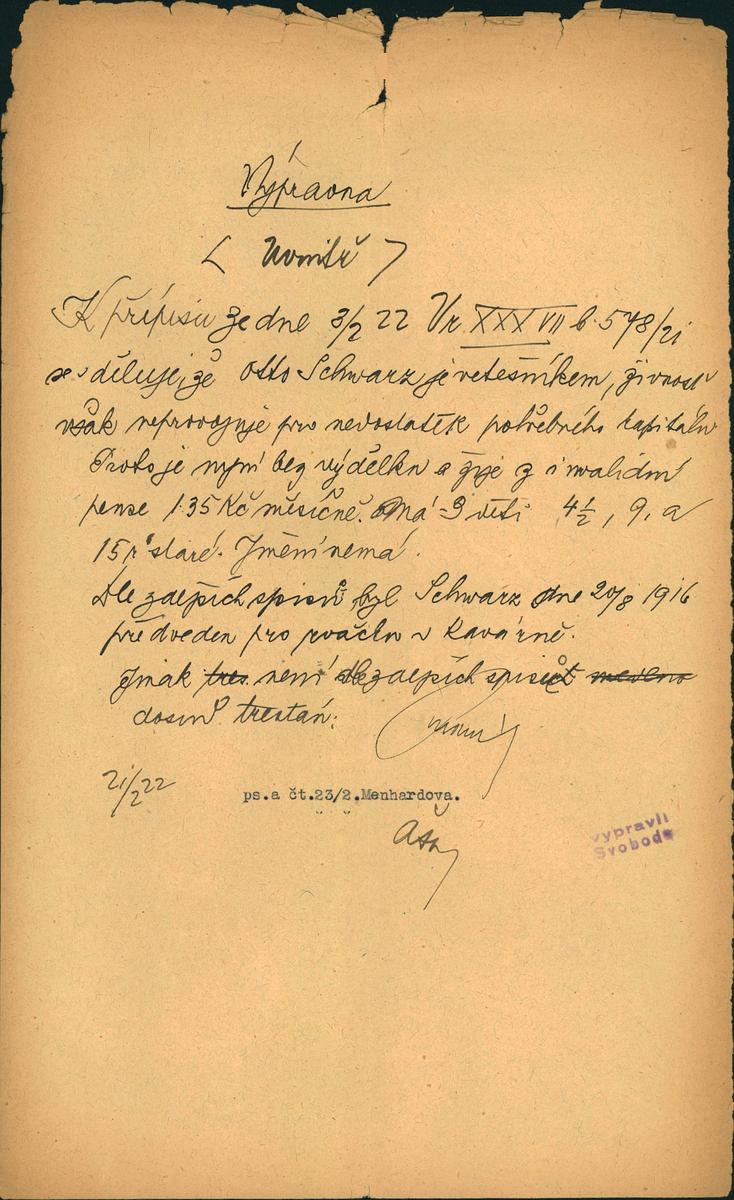 Výpravna
( Uvnitř )
K přípisu ze dne 3/2 22 Vr XXXVII b. 578/21
se sděluje, že Otto Schwarz je vetešníkem, živnost
však neprovozuje pro nedostatek potřebného kapitálu
Proto je nyní bez výdělku a žije z invalidní
pense 135 Kč měsíčně. Má 3 děti 4½, 9, a
15 r staré. Jmění nemá.
Dle zdejších spisů byl Schwarz dne 20/8 1916
předveden pro rvačku v kavárně.
Jinak tres. není dle zdejších spisů
dosud trestán.
21/2 22
ps.a čt.23/2.Menhardova.
vypravil
Svoboda